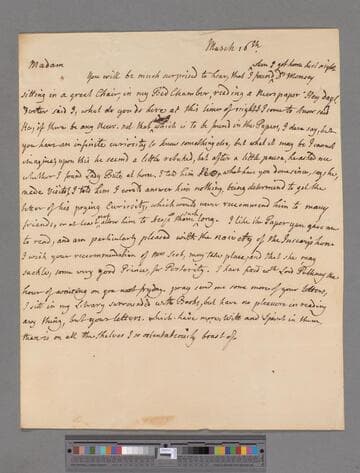 March 16th
Madam when I got home last night
You will be much surprised to hear, that I found Dr Monsey
sitting in a great Chair, in my Bed Chamber, reading a News paper. Hey day!
Doctor said I, what do you do here at this hour of night? I come to know said
he, if there be any News. not that, which is to be found in the Papers, I dare say, but
you have an infinite curiosity to know something else, but what it may be I cannot
imagine, upon this he seemed a little rebuked, but after a little pause, he asked me
whether I found Lady Bute at home, I told him No, what have you done since, says he,
made Visits, I told him I would answer him nothing, being determined to get the
better of his prying Curiosity, which would never recommend him to many
friends, or at least not allow him to keep them long. I like the Paper you gave me
to read, and am particularly pleased with the naivety of the
I wish your recommendation of Mrs Scot, may take place, and that she may
suckle, some very good Prince, for Posterity. I have fixed with Lord Pulteny the
hour of waiting on you next fryday. pray send me some more of your letters,
I sit in my Library surrounded with Books, but have no pleasure in reading
any thing, but your letters. which have more Witt and Spirit in them
than is on all the Shelves I so ostentatiously boast of.